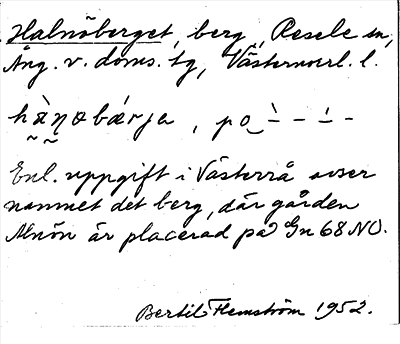 Halnöberget, berg, Resele sn,
Ång. v. doms. tg, Västernorrl. l.
hàŋøbǽrja, på – ́ – – ́ –
Enl. uppgift i Västerrå avser
namnet det berg, där gården
Alnön är placerad på Gn 68 NO.
Bertil Flemström 1952.